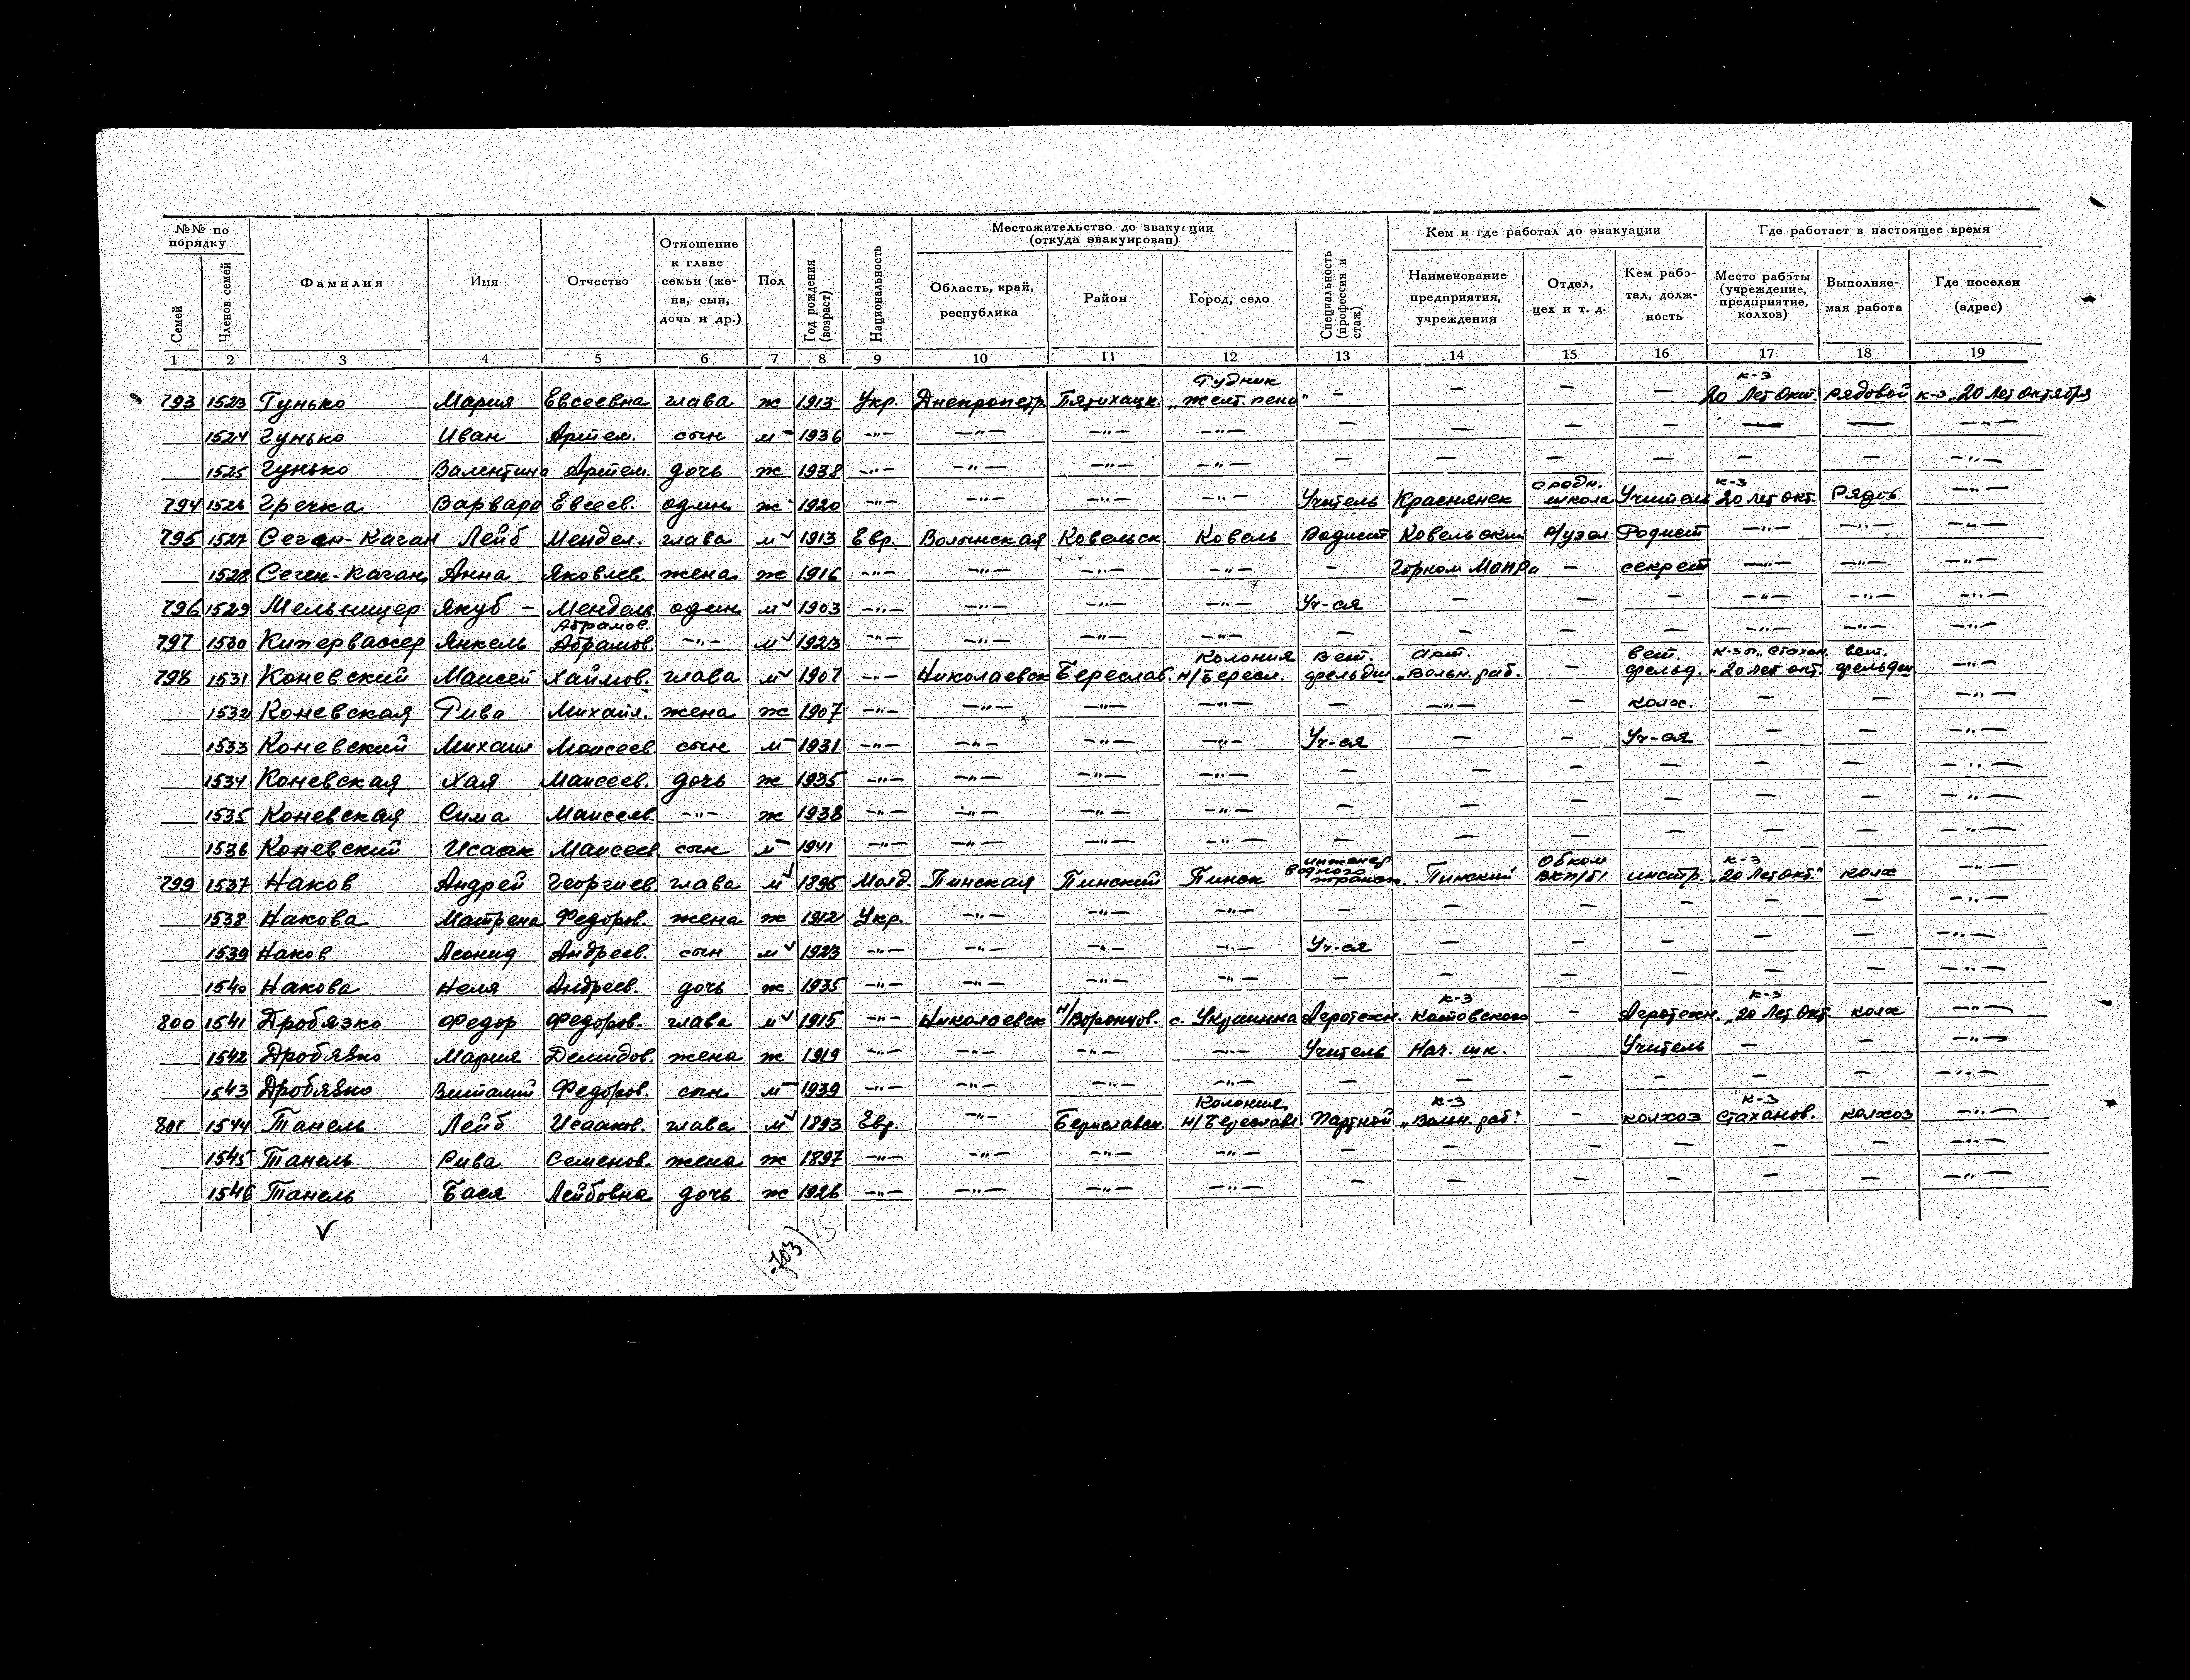 №№ по порядку Местожительство до эвакуации (откуда эвакуирован) Кем и где работал до эвакуации Где работает в настоящее время
Семей Членов семей Фамилия Имя Отчество Отношение к главе семьи (жена, сын, дочь и др.) Пол Год рождения (возраст) Национальность Область, край, республика Район Город, село Специальность (профессия и стаж) Наименование предприятия, учреждения Отдел, цех и т. д. Кем работал, должность Место работы (учреждение, предприятие, колхоз) Выполняемая работа Где поселен (адрес)
1 2 3 4 5 6 7 8 9 10 11 12 13 14 15 16 17 18 19
793 1523 Гунько Мария Евсеевна глава ж 1913 Укр. Днепропетр. Пятихацк. Рудник "Желт. - - - - к-з 20 Лет Окт. рядовой к-з "20 Лет Октября
1524 Гунько Иван Артем. сын м 1936 -"- -"- -"- -"- - - - - - - -"-
1525 Гунько Валентина Артем. дочь ж 1938 -"- -"- -"- -"- - - - - - - -"-
794 1526 Гречка Варвара Евсеев. один ж 1920 -"- -"- -"- -"- Учитель Краснянск средн. школа Учитель к-з 20 лет окт. Рядов -"-
795 1527 Сеген-Каган Лейб Мендел. глава м 1913 Евр. Волынская Ковельск. Ковель Радист Р/узел Радист -"- -"- -"-
1528 Сеген-Каган Анна Яковлев. жена ж 1916 -"- -"- -"- -"- - Горком Мопра - секрет -"- -"- -"-
796 1529 Мельницер Якуб - Мендель один м 1903 -"- -"- -"- -"- Уч-ся - - - -"- -"- -"-
797 1530 Кипервассер Янкель Абрамов. Абрамов. -"- м 1923 -"- -"- -"- -"- - - - - -"- -"- -"-
798 1531 Коневский Маисей Хаймов. глава м 1907 -"- Николаевск Береслав. Колония Н/Бересл. вет. фельдш арт. "Вольн. раб. - вет. фельд. "Стахан. "20 лет окт. вет. фельдш -"-
1532 Коневская Рива Михайл. жена ж 1907 -"- -"- -"- -"- - -"- - колх. - - -"-
1533 Коневский Михаил Моисеев сын м 1931 -"- -"- -"- -"- Уч-ся - - Уч-ся - - -"-
1534 Коневская Хая Маисеев. дочь ж 1935 -"- -"- -"- -"- - - - - - - -"-
1535 Коневская Сима Маисеев -"- ж 1938 -"- -"- -"- -"- - - - - - - -"-
1536 Коневский Исаак Маисеев сын м 1941 -"- -"- -"- -"- - - - - - - -"-
799 1537 Наков Андрей Георгиев глава м 1895 Молд. Пинская Пинский Пинск инженер водного трансп. Пинский Обком ВКП/б/ инстр. к-з "20 Лет Окт." колх -"-
1538 Накова Матрена Федоров. жена ж 1912 Укр. -"- -"- -"- - - - - - - -"-
1539 Наков Леонид Андреев. сын м 1923 -"- -"- -"- -"- Уч-ся - - - - - -"-
1540 Накова Неля Андреев. дочь ж 1935 -"- -"- -"- -"- - - - - - - -"-
800 1541 Дробязко Федор Федоров. глава м 1915 -"- Николаевск Н/Воронцов. с. Агротехн. к-з Котовского - Агротехн. к-з "20 Лет Окт. колх -"-
1542 Дробязко Мария Демидов. жена ж 1919 -"- -"- -"- -"- Учитель Нач. шк. Учитель - - -"-
1543 Дробязко Виталий Федоров. сын м 1939 -"- -"- -"- -"- - - - - - - -"-
801 1544 Танель Лейб Исааков. глава м 1893 Евр. -"- Бериславск. Колония Н/Береславл. Партной к-з "Вольн. раб." - колхоз к-з Стаханов. колхоз -"-
1545 Танель Рива Семенов. жена ж 1897 -"- -"- -"- -"- - - - - - - -"-
1546 Танель Бася Лейбовна дочь ж 1926 -"- -"- -"- -"- - - - - - - -"-
703
15